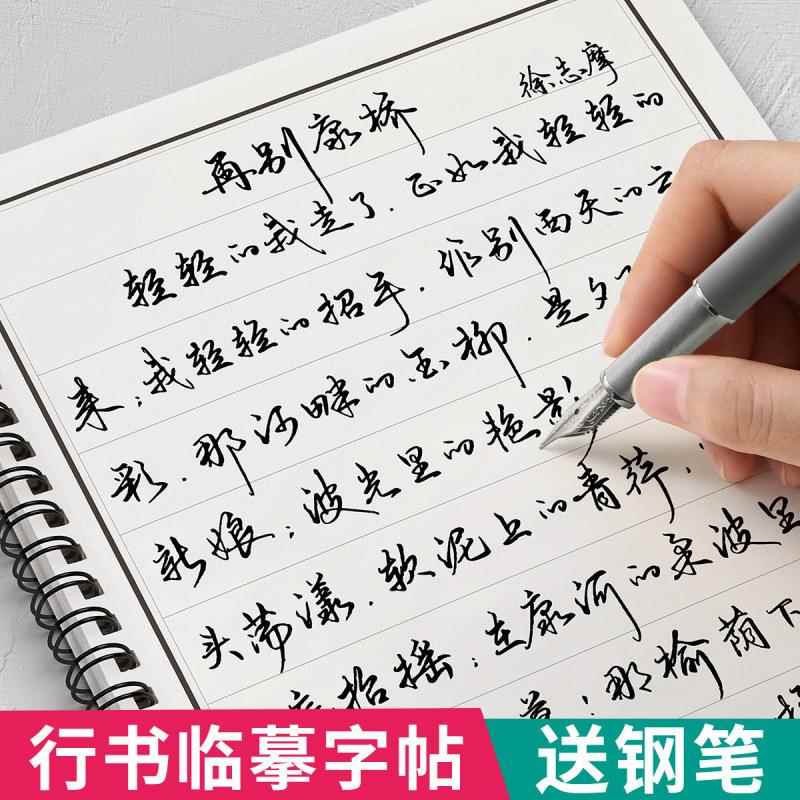 再别康桥
徐志摩
轻轻的我走了.正如我轻轻的
来;我轻轻的招手.作别西天的云
彩.那河畔的金柳.是夕
新娘;波光里的艳影
头荡漾.软泥上的青荇.
底招摇;在康河的柔波里
草!那榆荫下
行书临摹字帖
送钢笔